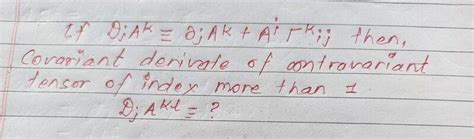 If DjA^k ≡ ∂jA^k + A^i Γ^k ij then,
Covariant derivate of contravariant
tensor of index more than 1.
DjA^kl = ?